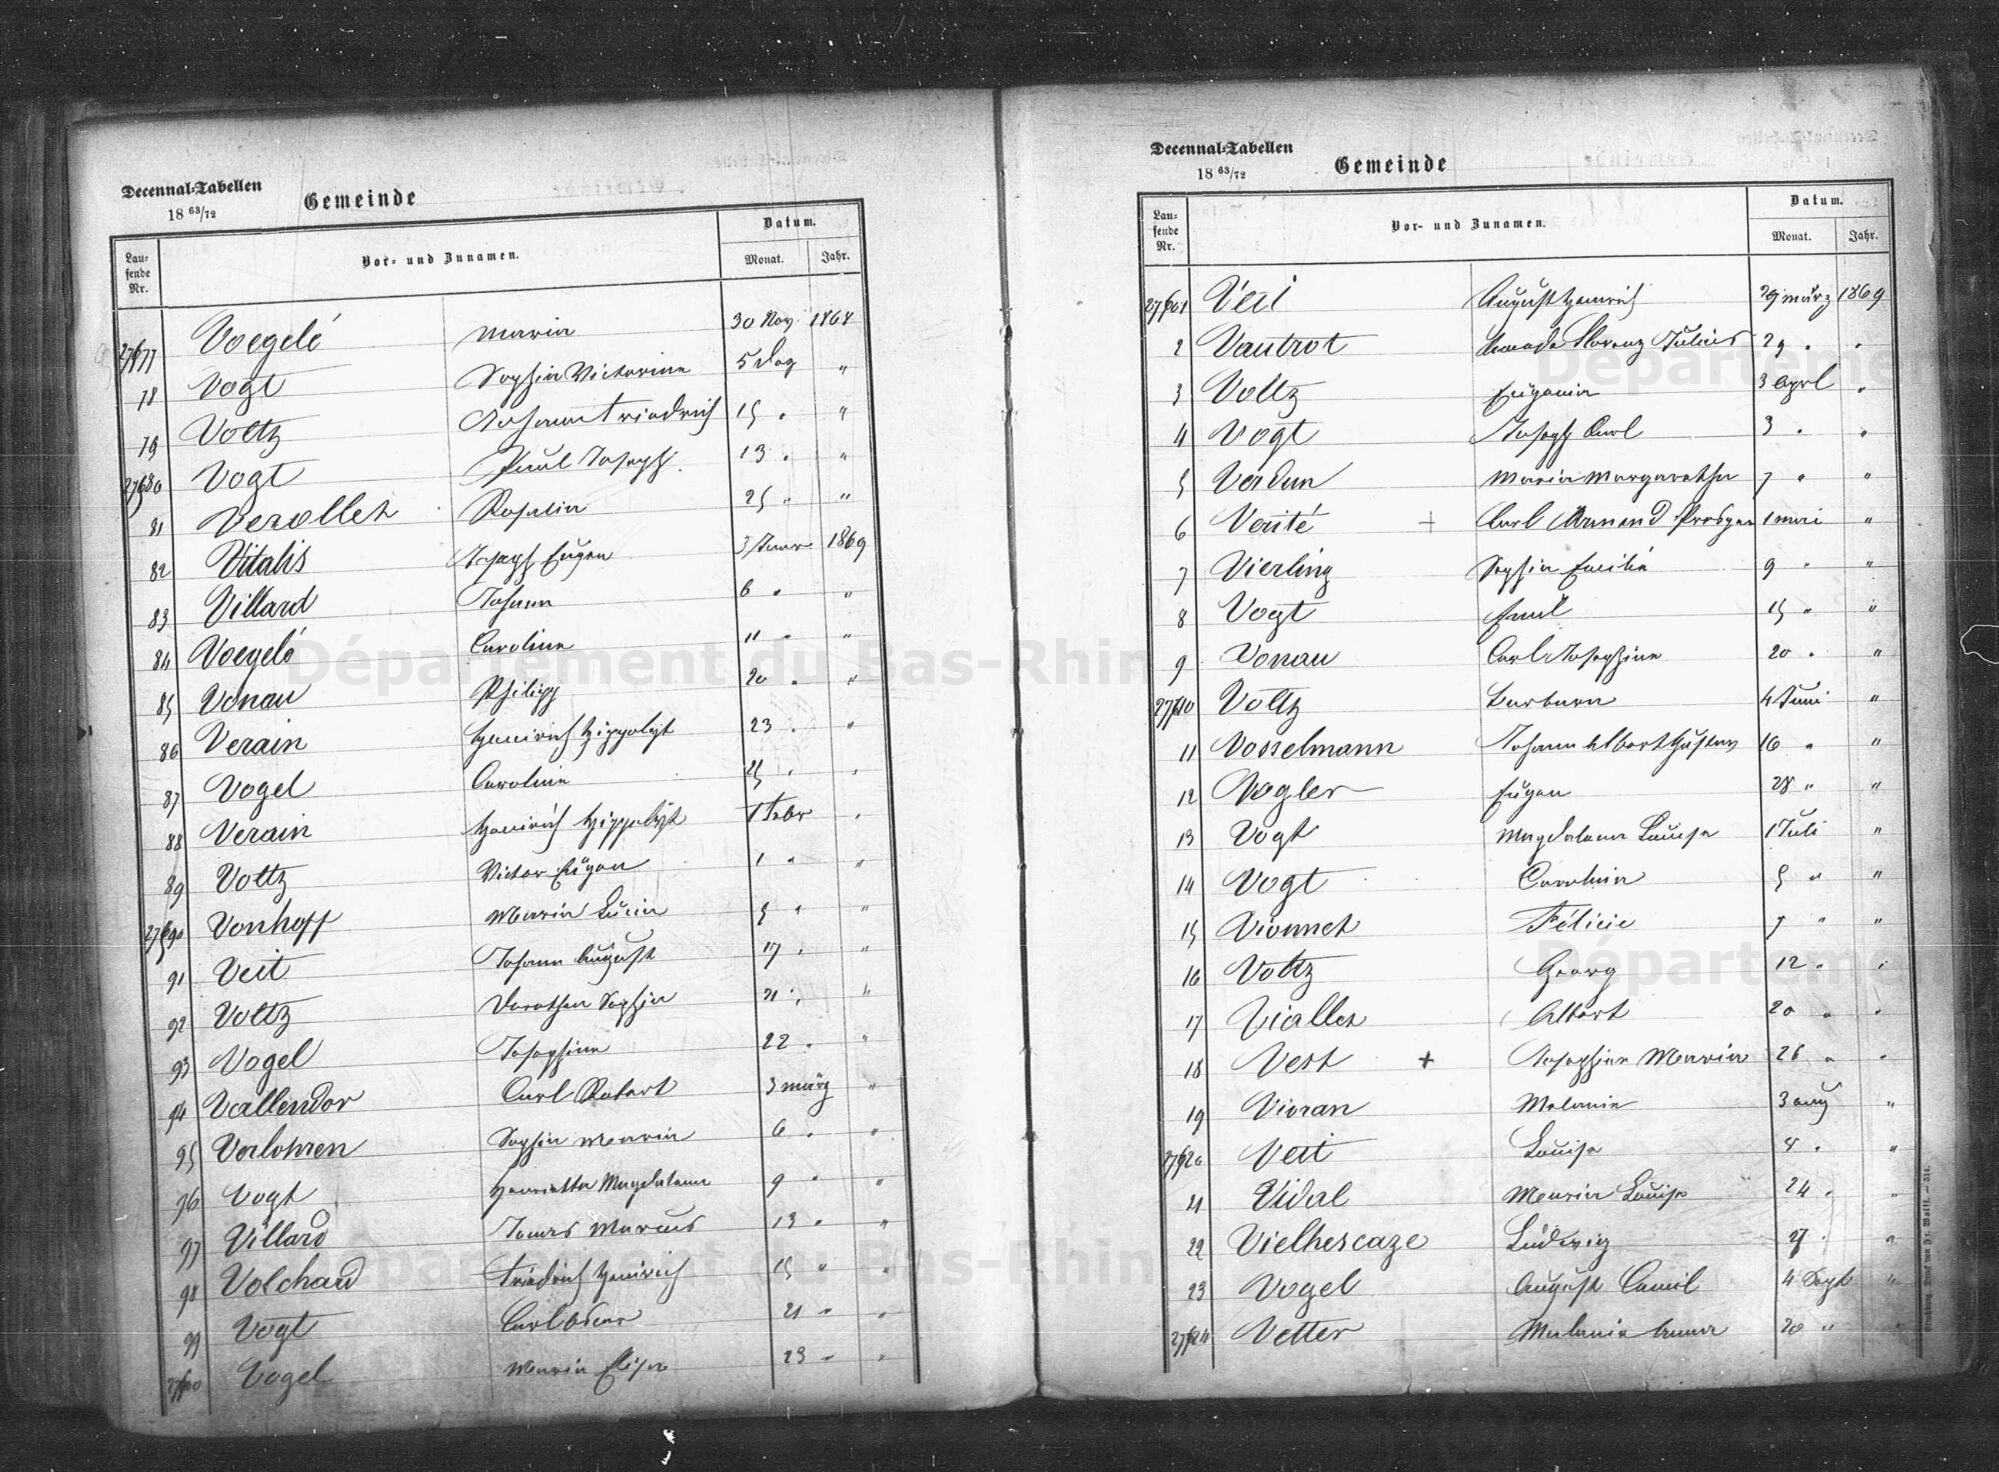 Decennal-Tabellen
18 63/72
Gemeinde
Lau-
fende
Nr.
Vor- und Zunamen.
Datum.
Monat.
Jahr.
27677 Voegelé Maria 30 Nov 1868
78 Vogt Sophia Victorina 5 Dez "
79 Voltz Johann Friedrich 15 " "
27680 Vogt Paul Joseph 13 " "
81 Verollet Rosalia 25 " "
82 Vitalis Joseph Eugen 3 Januar 1869
83 Villard Johann 6 " "
84 Voegelé Carolina 11 " "
85 Vonau Philipp 20 " "
86 Verain Heinrich Hippolyt 23 " "
87 Vogel Carolina 25 " "
88 Verain Heinrich Hippolyt 1 Febr "
89 Voltz Victor Eugen 1 " "
27690 Vonhoff Maria Lucia 5 " "
91 Veit Johann August 17 " "
92 Voltz Dorothea Sophia 21 " "
93 Vogel Josephina 22 " "
94 Vallendor Carl Robert 3 März "
95 Verlohren Sophia Maria 6 " "
96 Vogt Henrietta Magdalena 9 " "
97 Villard Marcus 13 " "
98 Volchard Friedrich Heinrich 15 " "
99 Vogt Carl Oscar 21 " "
27700 Vogel Maria Elisa 23 " "
Decennal-Tabellen
18 63/72
Gemeinde
Lau-
fende
Nr.
Vor- und Zunamen.
Datum.
Monat.
Jahr.
27701 Veit August Heinrich 29 März 1869
2 Vautrot Florenz Julius 29 " "
3 Voltz Eugenia 3 Aprl "
4 Vogt Joseph Carl 3 " "
5 Verdun Maria Margaretha 7 " "
6 Verité + Carl Armand Prosper 1 Mai "
7 Vierling Sophia Emilie 9 " "
8 Vogt Emil 15 " "
9 Vonau Carl Josephine 20 " "
27710 Voltz Barbara 4 Juni "
11 Vosselmann Johann Albert Gustav 16 " "
12 Vogler Eugen 28 " "
13 Vogt Magdalena Louisa 1 Juli "
14 Vogt Carolina 5 " "
15 Vionnet Félicie 7 " "
16 Voltz Georg 12 " "
17 Viallet Albert 20 " "
18 Vest + Josephine Maria 26 " "
19 Vioran Melania 3 Aug "
27720 Veit Louisa 8 " "
21 Vidal Maria Louisa 24 " "
22 Vielhescaze Ludwig 27 " "
23 Vogel August Camil 4 Sept "
27724 Vetter Melania Anna 20 " "
Département du Bas-Rhin
Département du Bas-Rhin
Départeme
Départeme